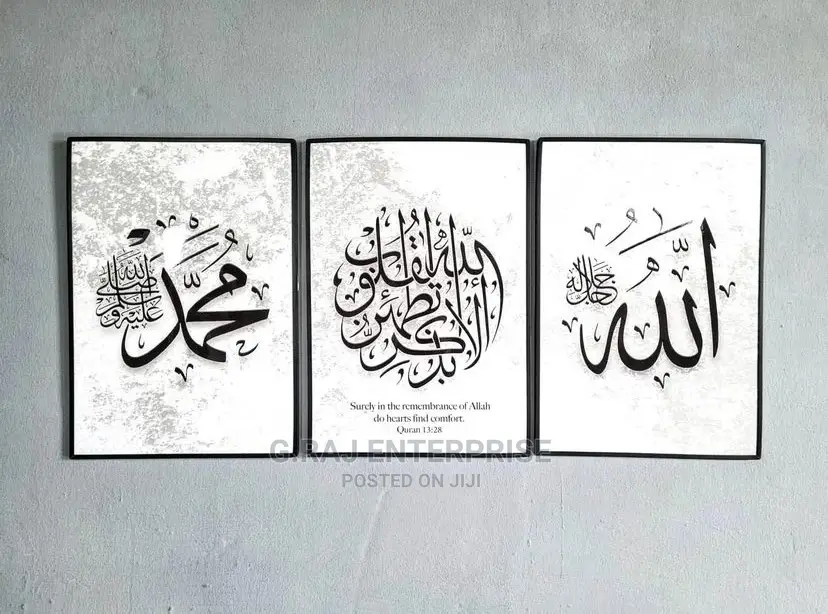 محمد
صلى الله عليه وسلم
ألا بذكر الله تطمئن القلوب
Surely in the remembrance of Allah
do hearts find comfort.
Quran 13:28
الله
جل جلاله
G.RAJ ENTERPRISE
POSTED ON JIJI